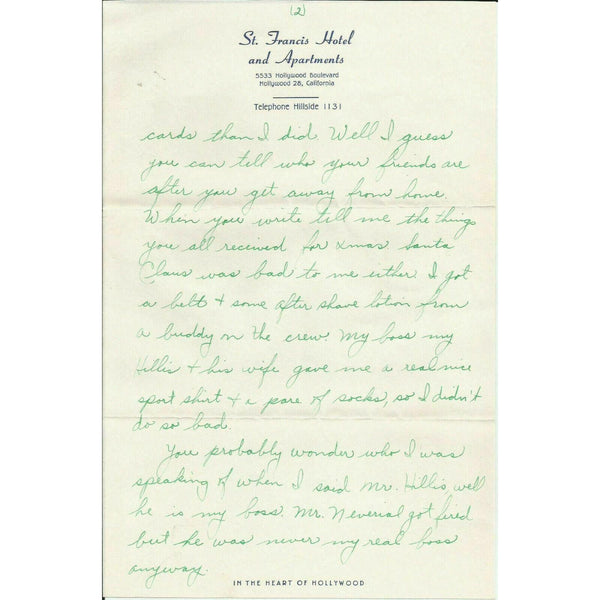 (2)
St. Francis Hotel
and Apartments
5533 Hollywood Boulevard
Hollywood 28, California
Telephone Hillside 1131
cards than I did. Well I guess
you can tell who your friends are
after you get away from home.
When you write till me the things
you all received for xmas. Santa
Claus was bad to me either I got
a belt + some after shave lotion from
a buddy on the crew. My boss my
Hillis + his wife gave me a real nice
sport shirt + a pare of socks, so I didn't
do so bad.
You probably wonder who I was
speaking of when I said Mr. Hillis, well
he is my boss. Mr. Neverial got fired
but he was never my real boss
anyway.
IN THE HEART OF HOLLYWOOD